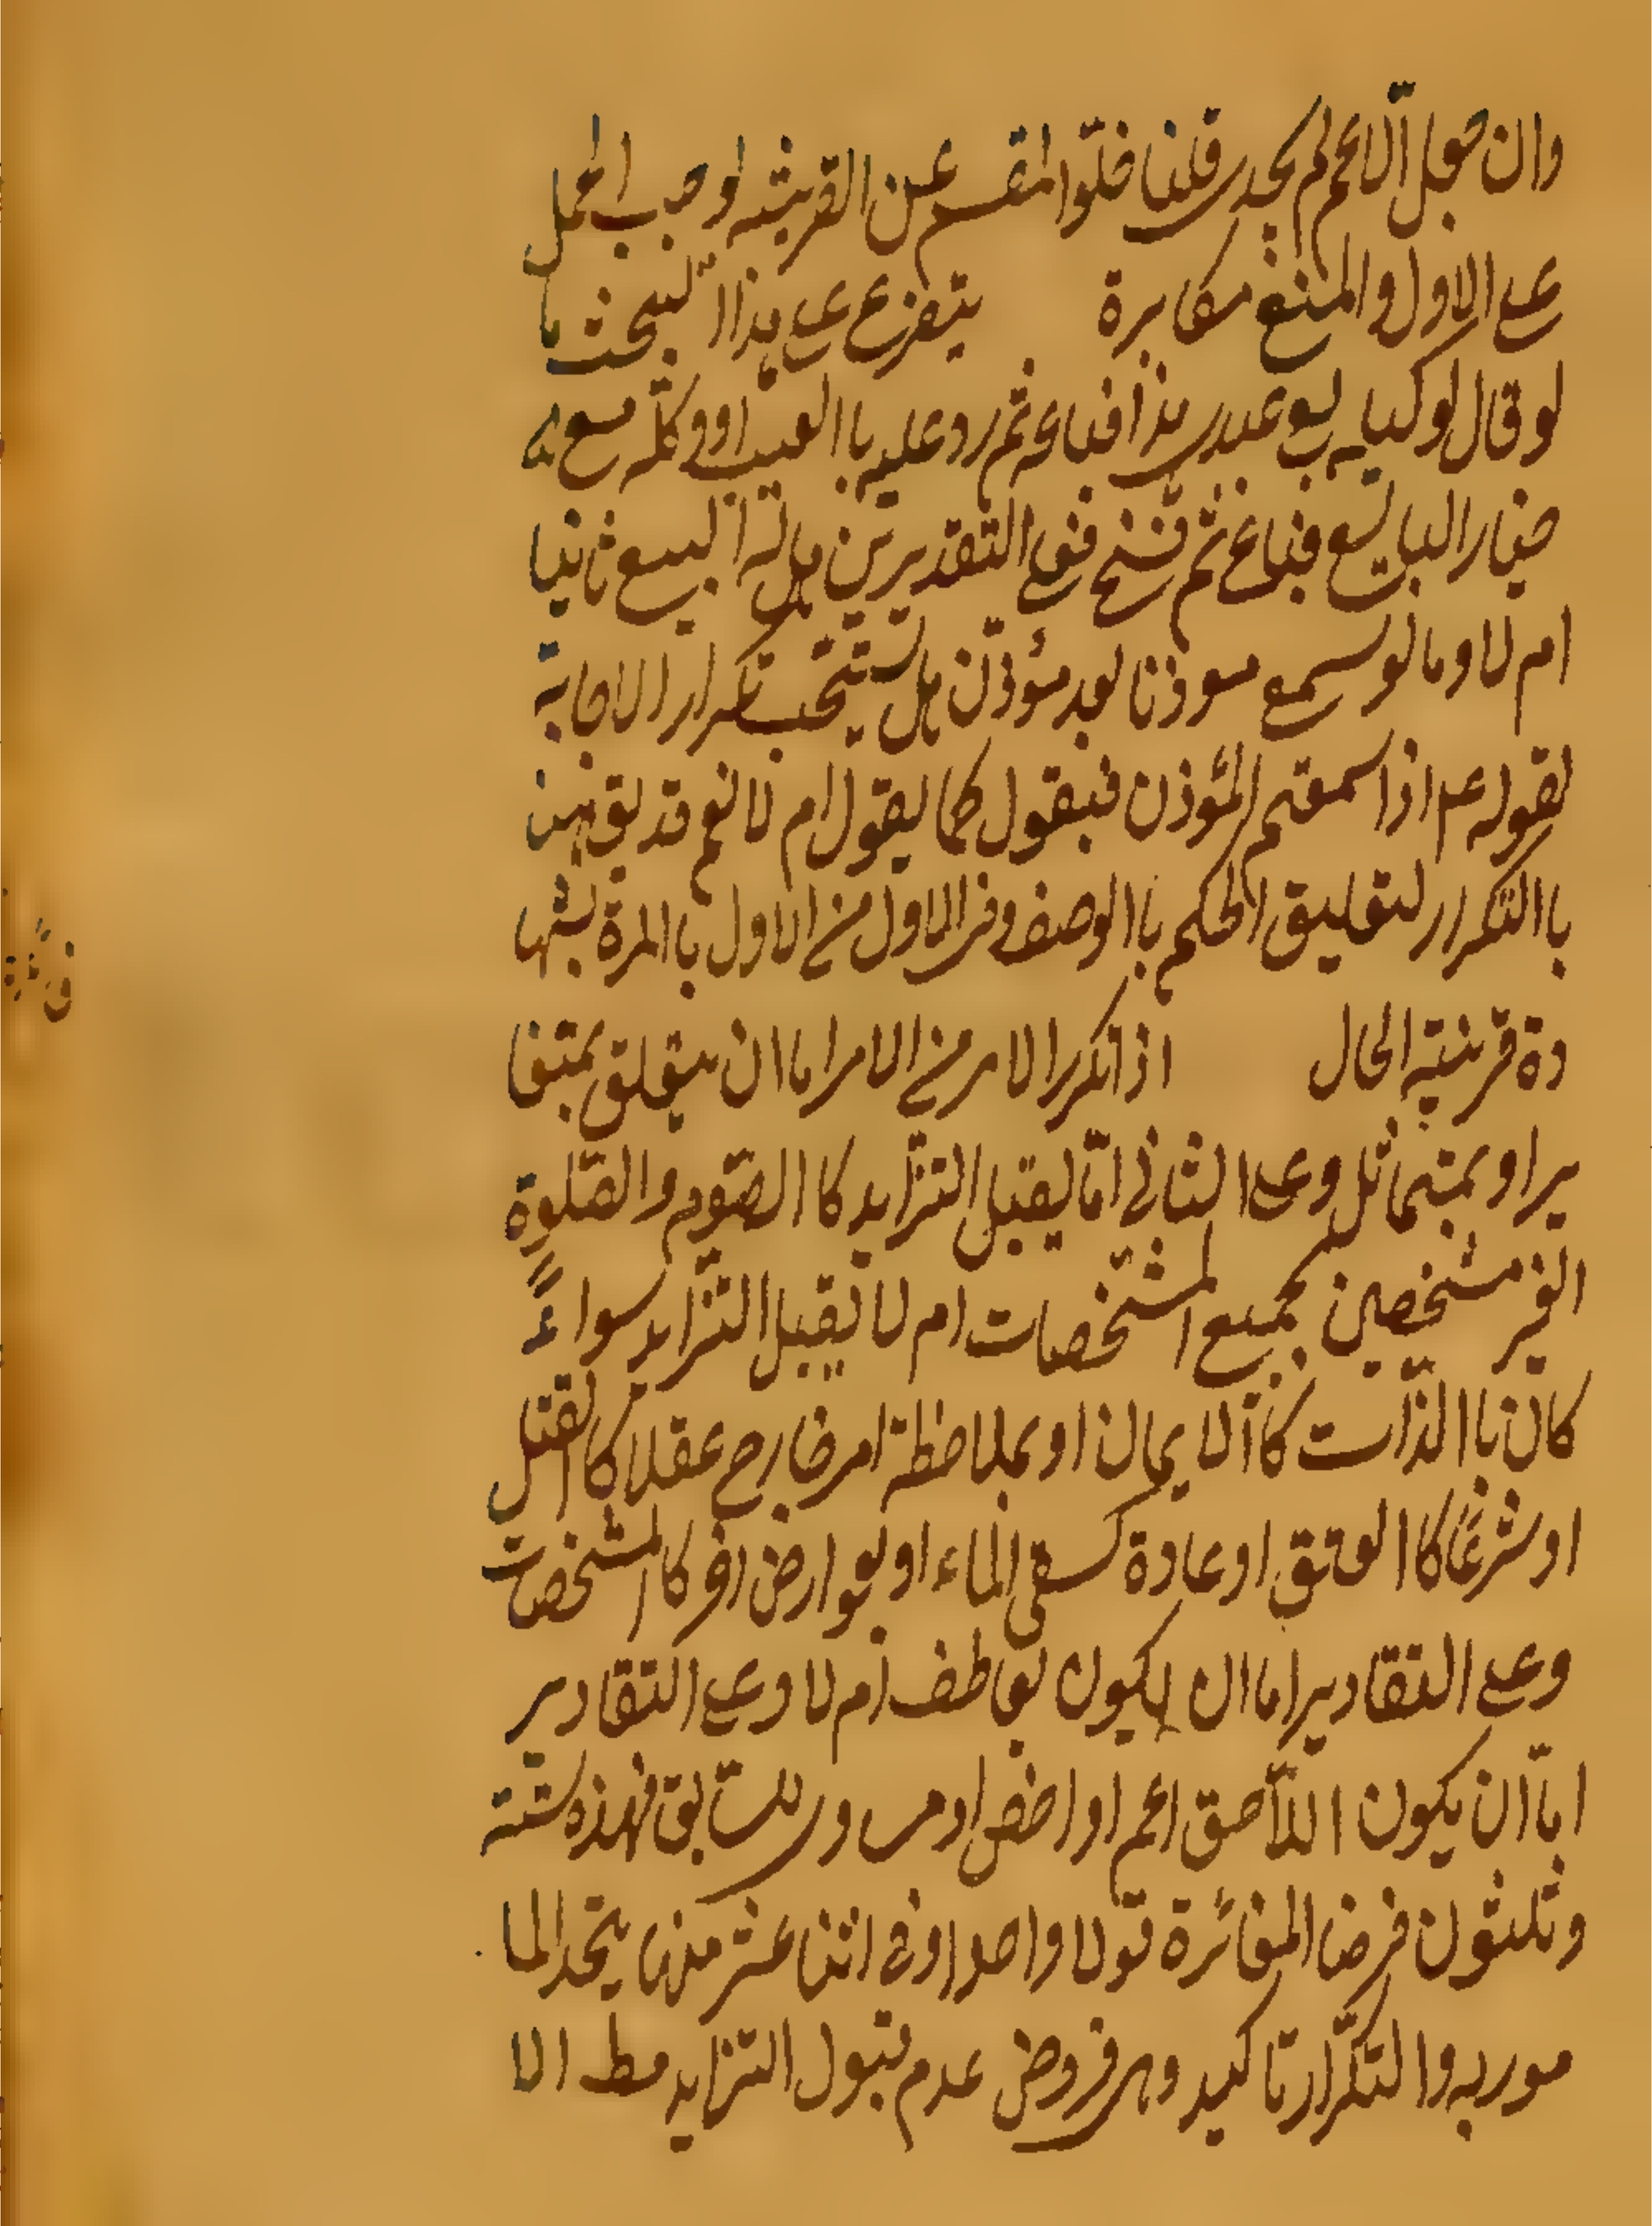 وان جعل الاعم لم يجد قلنا خلو المقسم عن القرينة لوجب الحمل
على الاول والمنع مكابرة يتفرع على هذا البحث ما
لو قال لوكيله بع عبدى هذا فباعه ثم رد عليه باالعيب او وكله مع
خيار البايع فباع ثم فسخ فعلى التقديرين هل له البيع ثانيا
ام لا وما لو سمع موذنا بعد مؤذن هل يستحب تكرار الاجابة
لقوله عم اذا سمعتم المؤذن فيقول كما يقول ام لا نعم قد يق هنا
باالتكرار لتعليق الحكم باالوصف وفى الاول من الاول باالمرة بشها
دة قرينة الحال اذا تكرر الامر من الامر اما ان يتعلق بمتغا
ير او بمتماثل وعلى الثانى اما يقبل التزايد كاالصوم والصلوة
الغير مشخصين بجميع المشخصات ام لا يقبل التزايد سواء
كان باالذات كاالايمان او بملاحظة امر خارج عقلا كاالقتل
او شرعا كاالعتق او عادة كسقى الماء او لعوارض اخر كاالمشخصات
وعلى التقادير اما ان يكون لعاطف ام لا وعلى التقادير
اما ان يكون اللاحق اعم او اخص او مساور للسابق فهذه ستة
وثلثون فرضا المغائرة قولا واحدا وفى اثنا عشر منها يتحد الما
مور به والتكرار تاكيد وهى فروض عدم قبول التزايد مط الا